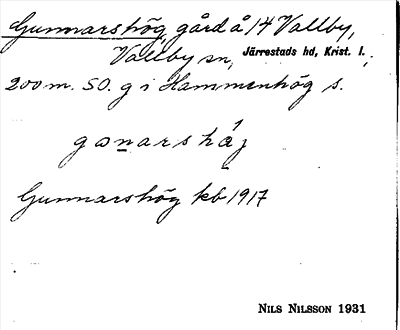 Gunnarshög, gård å 14 Vallby,
Vallby sn, Järrestads hd, Krist. l.,
200 m. SO. g i Hammenhög s.
Gunnarshög kb 1917
NILS NILSSON 1931